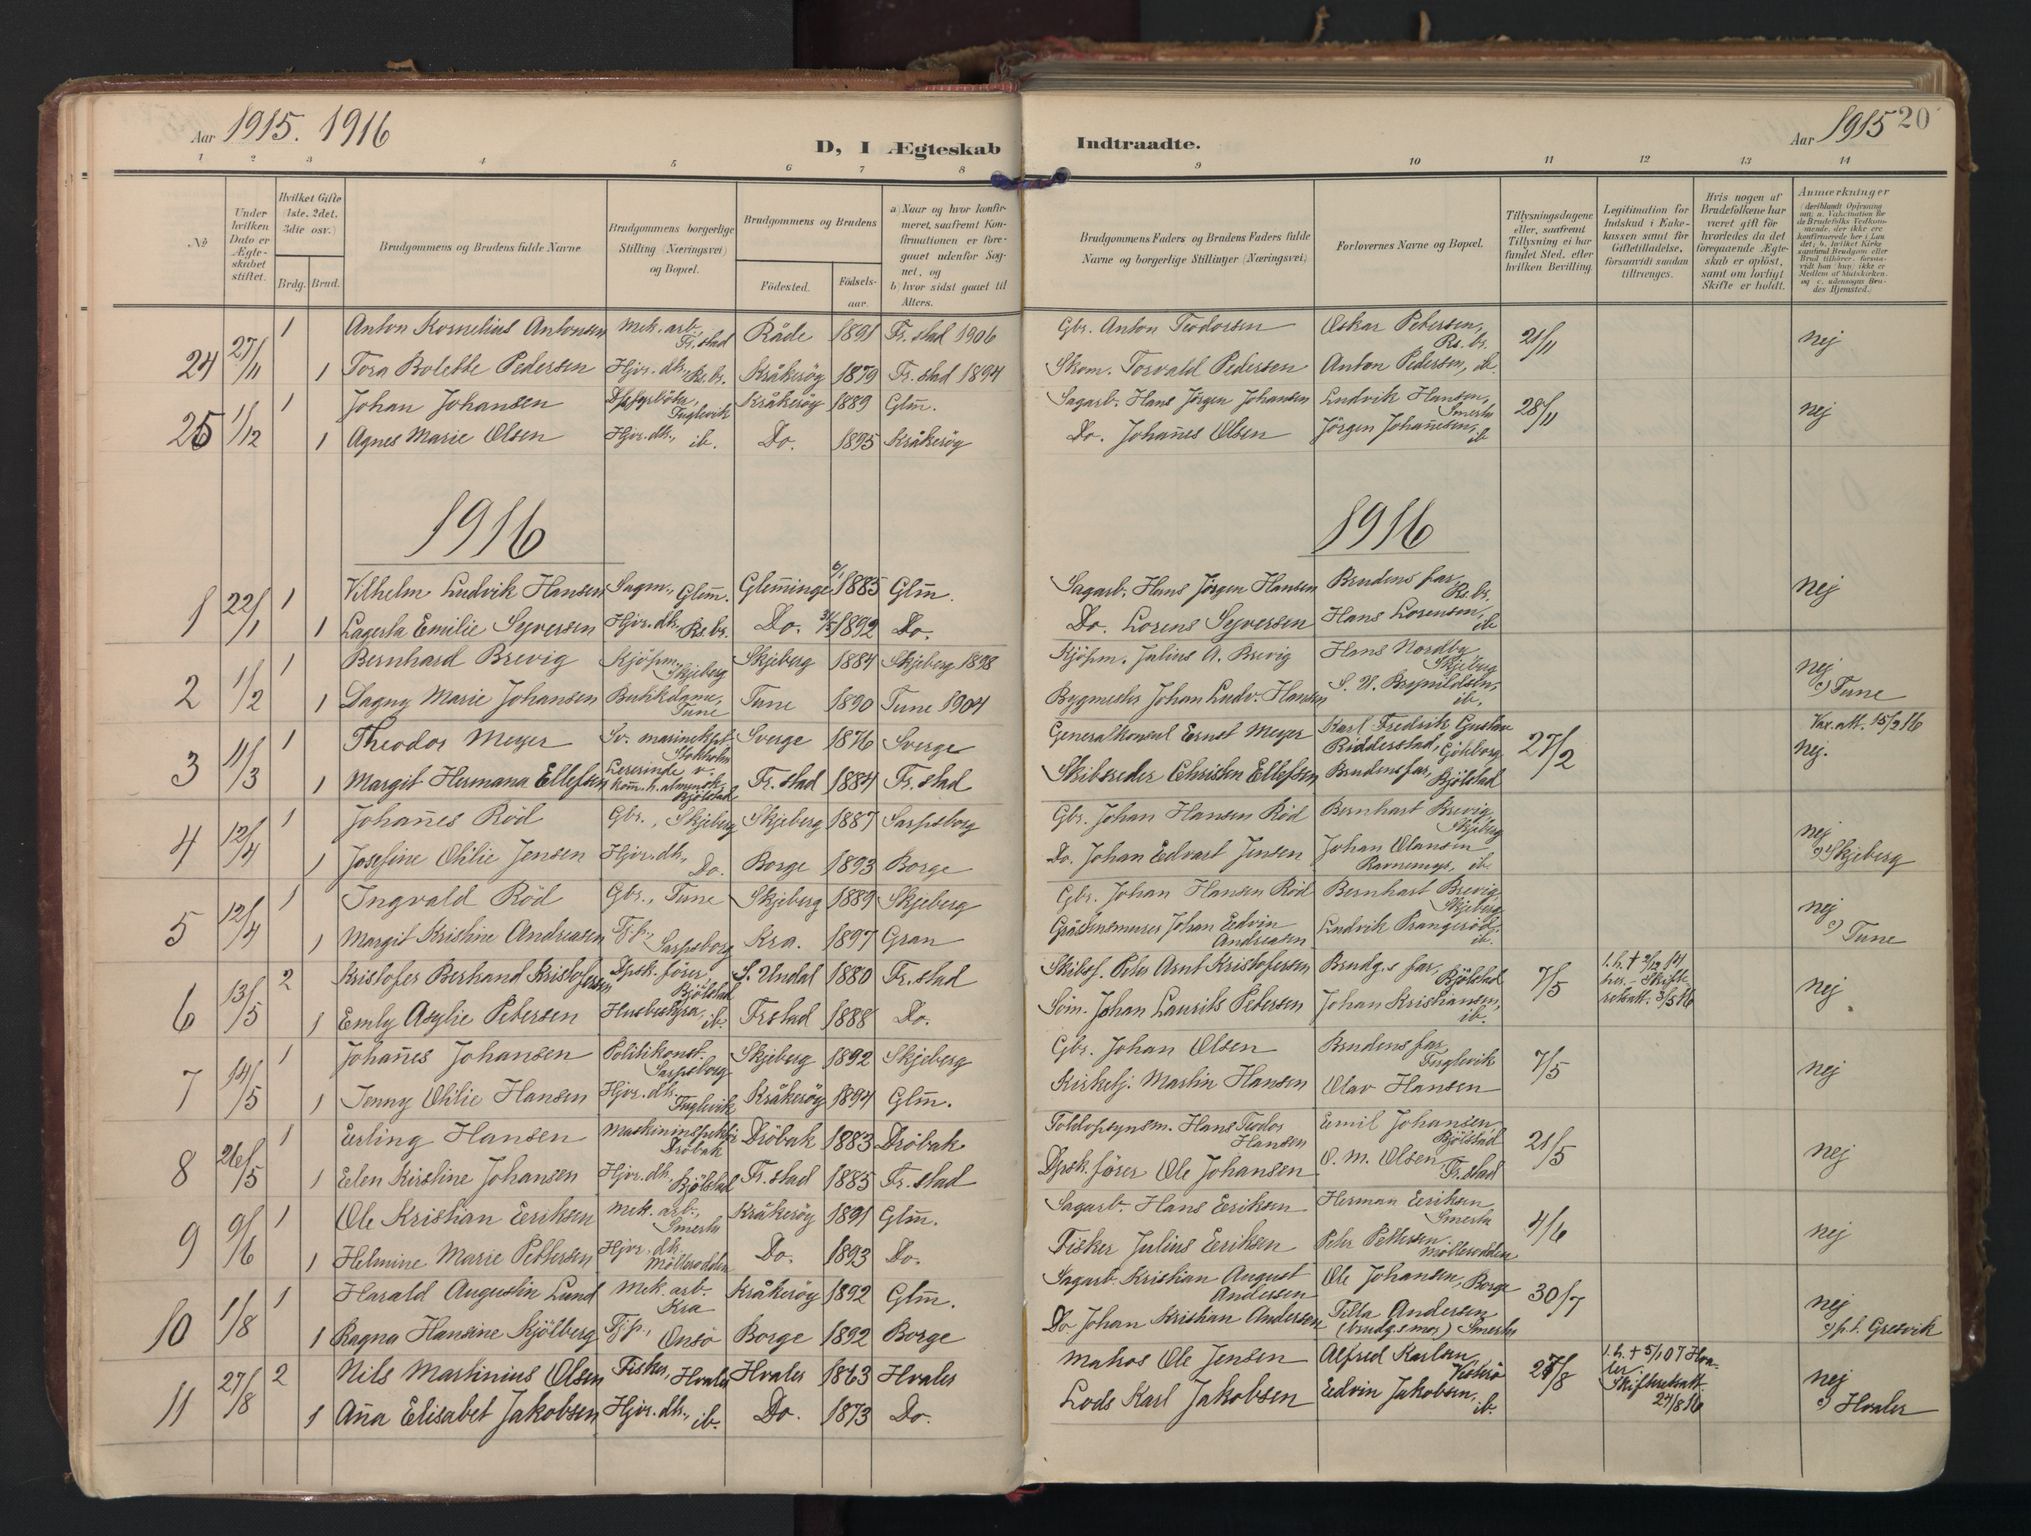 Aar 1915. 1916
D, I Ægteskab Indtraadte.
Aar 1915 20
1 2 3 4 5 6 7 8 9 10 11 12 13 14
No
Under hvilken Dato er Ægteskabet stiftet.
Hvilket Gifte (1ste. 2det. 3die osv.)
Brdg. Brud.
Brudgommens og Brudens fulde Navne
Brudgommens borgerlige Stilling (Næringsvei) og Bopæl.
Brudgommens og Brudens
Fødested. Fødselsaar.
a) Naar og hvor konfirmeret, saafremt Konfirmationen er foregaaet udenfor Sognet, og
b) hvor sidst gaaet til Alters.
Brudgommens Faders og Brudens Faders fulde Navne og borgerlige Stillinger (Næringsvei)
Forlovernes Navne og Bopæl.
Tillysningsdagene eller, saafremt Tillysning ei har fundet Sted, efter hvilken Bevilling.
Legitimation for Indskud i Enkekassen samt for Giftetilladelse, forsaavidt saadan tiltrænges.
Hvis nogen af Brudefolkene har været gift før hvorledes da det foregaaende Ægteskab er opløst, samt om lovligt Skifte er holdt.
Anmærkninger
(deriblandt Oplysning om: a. Vakcination for de Brudefolks Vedkommende, der ikke ere konfirmerede her i Landet; b. hvilket Kirkesamfund Brudgom eller Brud tilhører, forsaavidt han (hun) ikke er Medlem af Statskirken, og c. udensogns Brudes Hjemsted.)
24 27/11 1 Anton Kornelius Antonsen Mek. arb., Fr.stad Råde 1891 Fr.stad 1906 Gbr. Anton Teodorsen Oskar Petersen, Rs.br. 21/11 nej
1 Tora Bolette Pedersen Hjv. dk., Rs.br. Kråkerøy 1879 Fr.stad 1894 Skom. Torvald Pedersen Anton Pedersen, ib.
25 1/12 1 Johan Johansen Fuglevik Kråkerøy 1889 Glm. Sagarb. Hans Jörgen Johansen Ludvik Hansen, Smerta 28/11 nej
1 Agnes Marie Olsen Hjv. dk., ib. Do. 1895 Kråkerøy Do. Johañes Olsen Jörgen Johañesen, ib
1916 1916
1 22/1 1 Vilhelm Ludvik Hansen Sagm., Glm. Gleminge 1885 Glm. Sagarb. Hans Jörgen Hansen Brudens far, Rs.br. nej
1 Lagerta Emilie Syversen Hjv. dk., Rs.br. Do. 1892 Do. Do. Lorens Syversen Hans Lorensen, ib
2 1/2 1 Bernhard Brevig Kjöpm., Skjeberg Skjeberg 1884 Skjeberg 1898 Kjöpm. Julius A. Brevig Hans Nordby Skjeberg nej
1 Dagny Marie Johansen Butikdame, Tune Tune 1890 Tune 1904 Bygmester Johan Ludv. Hansen S. U. Brynildsen, ib. c) Tune
3 11/3 1 Theodor Meyer Sv. Stokholm Sverge 1876 Sverge Generalkonsul Ernst Meyer Karl Fredrik Gustav Ridderstad, Göteborg 27/2 Vax. att. 15/2 16 nej.
1 Margit Hermana Ellefsen Lererinde v. kom. h. almensk. Bjölstad Fr.stad 1884 Fr.stad Skibsreder Christen Ellefsen Brudens far, Bjölstad
4 12/4 1 Johañes Röd Gbr., Skjeberg Skjeberg 1887 Sarpsborg Gbr. Johan Hansen Röd Bernhart Brevig, Skjeberg nej
1 Josefine Otilie Jensen Hjv. dk., Do. Borge 1893 Borge Do. Johan Edvart Jensen Johan Olausen Ravnemyr, ib. c) Skjeberg
5 12/4 1 Ingvald Röd Gbr., Tune Skjeberg 1889 Skjeberg Gbr. Johan Hansen Röd Bernhart Brevig, Skjeberg nej
1 Margit Kristine Andreasen Tjp., Sarpsborg Kra. 1897 Gran Gråstensmurer Johan Edvin Andreasen Ludvik Prangeröd, ib. c) Tune
6 13/5 2 Kristofer Berhand Kristofersen Dpsk. förer Bjölstad S. Undal 1880 Fr.stad Skibsf. Peter Arnt Kristofersen Brudg.s far, Bjölstad 7/5 1. h. † 2/12 14 her. - Skifteretsatt. 3/5 16 nej
1 Emly Asylie Petersen Husbestyra, ib. Frstad 1888 Do. Söm. Johan Laurits Petersen Johan Kristiansen, ib.
7 14/5 1 Johañes Johansen Politikonst. Sarpsborg Skjeberg 1892 Skjeberg Gbr. Johan Olsen Brudens far Fuglevik 7/5 nej
1 Jenny Otilie Hansen Hjv. dk. Fuglevik Kråkerøy 1894 Glm. Kirketj. Martin Hansen Olav Hansen
8 26/5 1 Erling Hansen Maskininspektör Dröbak Dröbak 1883 Dröbak Toldopsynsm. Hans Teodor Hansen Emil Johansen, Bjölstad 21/5 nej
1 Elen Kirstine Johansen Hjv. dk., Bjölstad Fr.stad 1885 Fr.stad Dpsk. förer Ole Johansen O. M. Olsen, Fr.stad
9 9/6 1 Ole Kristian Eriksen Mek. arb., Smerta Kråkerøy 1891 Glm. Sagarb. Hans Eriksen Herman Eriksen Smerta 4/6 nej
1 Helmine Marie Pettersen Hjv. dk. Mölleroddén Do. 1893 Do. Fisker Julius Eriksen Peter Pettersen. Mölleroddén
10 1/8 1 Harald Augustin Lund Mek. arb. Kra Kråkerøy 1892 Glm. Sagarb. Kristian August Andersen Ole Johansen, Borge 30/7 nej
1 Ragna Hansine Kjölberg Tjp., Onsö Borge 1892 Borge Do Johan Kristian Andersen Tilla Andersen (brudg.s mor) Smerta c) p.t. Gresvik
11 27/8 2 Nils Martinius Olsen Fisker, Hvaler Hvaler 1863 Hvaler Matros Ole Jensen Alfred Karlsen Vesterö 27/8 1. h. † 5/1 07 Hvaler Skifteretsatt. 24/8 16 nej
1 Aña Elisabet Jakobsen Hjv. dk., ib. Do. 1873 Do. Lods Karl Jakobsen Edvin Jakobsen, ib. c) Hvaler